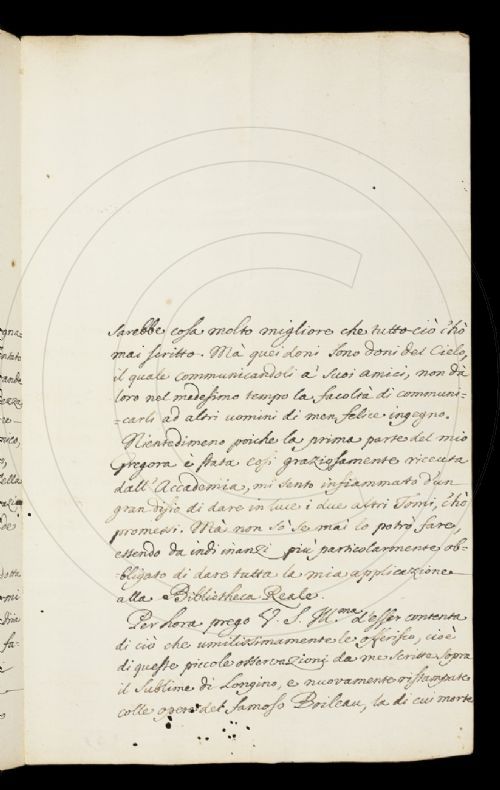 sarebbe cosa molto migliore che tutto ciò c'hò
mai scritto. Mà quei doni sono doni del Cielo,
il quale communicandoli a' suoi amici, non dà
loro nel medesimo tempo la facoltà di communi-
=carli ad altri uomini di men felice ingegno.
Nientedimeno poiche la prima parte del mio
Gregora è stata così graziosamente ricevuta
dall'Accademia, mi sento infiammato d'un
gran disio di dare in luce i due altri Tomi, c'hò
promessi. Mà non sò se mai lo potrò fare,
essendo da indi inanzi più particolarmente ob-
=bligato di dare tutta la mia applicazione
alla Bibliotheca Reale.
Per hora prego V. S. Ill.ma d'esser contenta
di ciò che umilissimamente le offerisco, cioè
di queste piccole osservazioni da me scritte sopra
il Sublime di Longino, e nuovamente ristampate
colle opere del famoso Boileau, la di cui morte